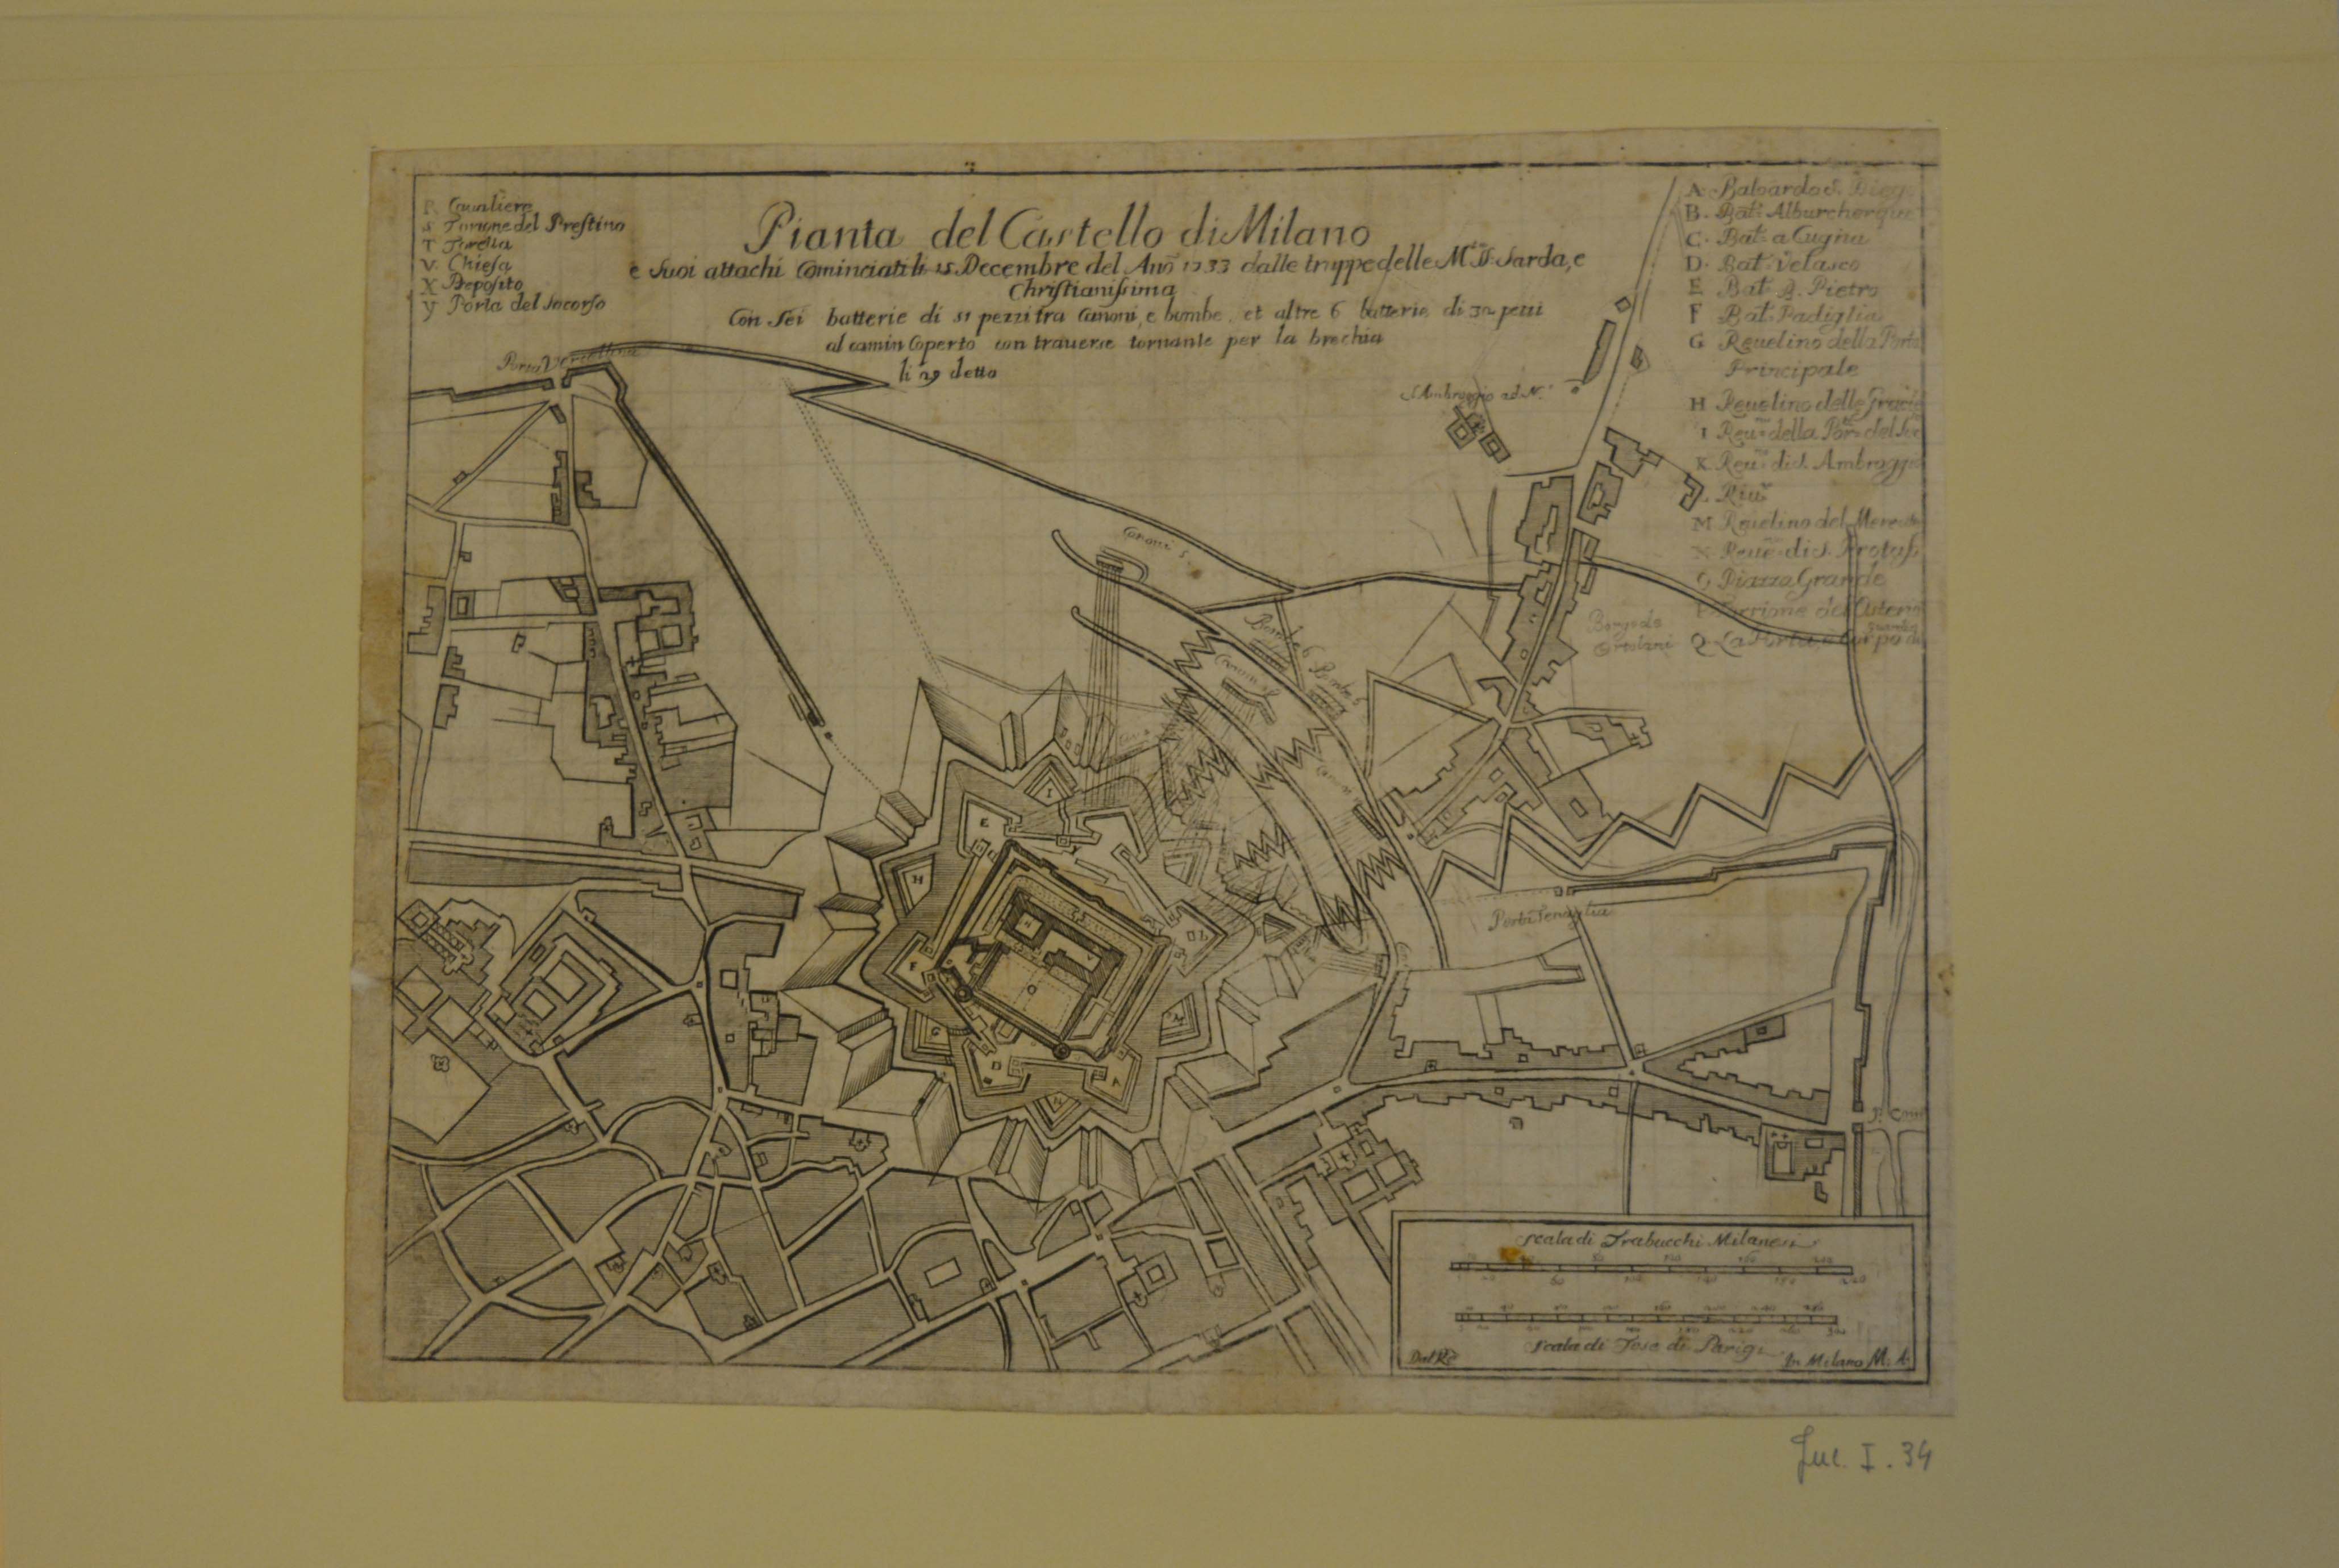 Pianta del Castello di Milano
e suoi attachi Cominciati li 15 Decembre del Año 1733 dalle truppe delle M. SS. Sarda, e
Christianissima
Con Sei batterie di 51 pezzi tra Canoni, e bombe, et altre 6 batterie di 32 pezzi
al camin Coperto con trauerse tornante per la brechia
li 29 detto
R. Caualiere
S Torrione del Prestino
T Torella
V. Chiesa
X Deposito
Y Porta del Socorso
A. Baloardo S. Diego
B. Bat. Alburcherque
C. Bat. a Cugna
D. Bat. Velasco
E Bat. D. Pietro
F Bat. Padiglia
G Reuelino della Porta
Principale
H Reuelino delle Gracie
I Reu. della Por. del Soc
K. Reu. di S. Ambroggio
L. Riu.
M Reuelino del
N Reue. di S. Protas
O Piazza Grande
P Torrione del
Q La Porta, e Corpo di
Guardia
Porta Vercellina
S Ambroggio ad N.
Canoni 5
Bombe 6
Bombe 5
Canoni
Borgo de
Ortolani
Porta Tenaglia
P. Com
I
E
H
F
G
D
O
L
M
scala di Trabucchi Milanesi
scala di Tose di Parigi
Dal Rè
In Milano M. A.
Juc. I. 34